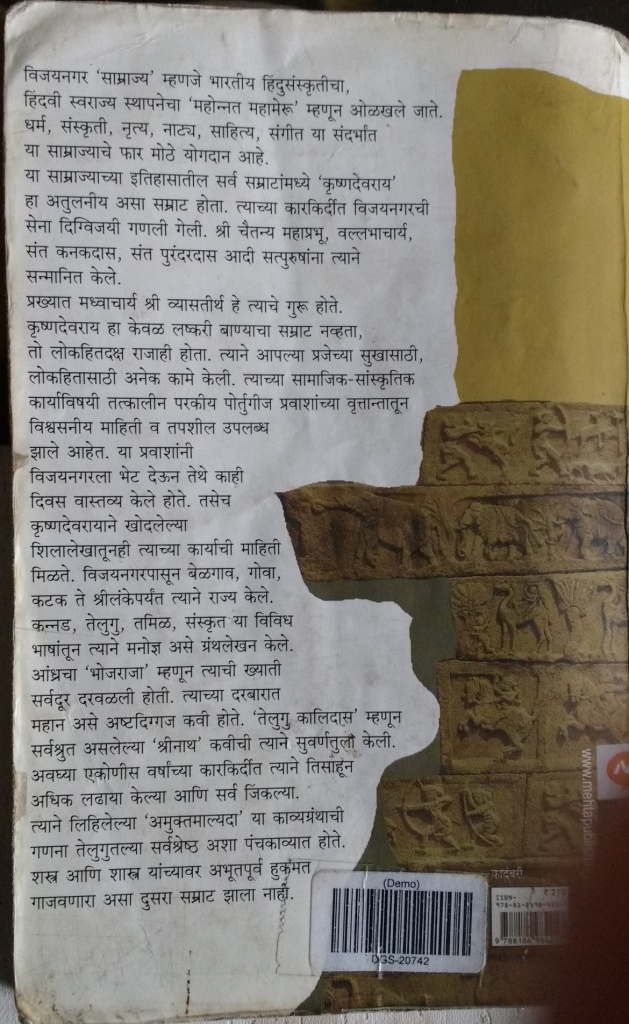 विजयनगर ‘साम्राज्य’ म्हणजे भारतीय हिंदुसंस्कृतीचा,
हिंदवी स्वराज्य स्थापनेचा ‘महोन्नत महामेरू’ म्हणून ओळखले जाते.
धर्म, संस्कृती, नृत्य, नाट्य, साहित्य, संगीत या संदर्भांत
या साम्राज्याचे फार मोठे योगदान आहे.
या साम्राज्याच्या इतिहासातील सर्व सम्राटांमध्ये ‘कृष्णदेवराय’
हा अतुलनीय असा सम्राट होता. त्याच्या कारकिर्दीत विजयनगरची
सेना दिग्विजयी गणली गेली. श्री चैतन्य महाप्रभू, वल्लभाचार्य,
संत कनकदास, संत पुरंदरदास आदी सत्पुरुषांना त्याने
सन्मानित केले.
प्रख्यात मध्वाचार्य श्री व्यासतीर्थ हे त्याचे गुरू होते.
कृष्णदेवराय हा केवळ लष्करी बाण्याचा सम्राट नव्हता,
तो लोकहितदक्ष राजाही होता. त्याने आपल्या प्रजेच्या सुखासाठी,
लोकहितासाठी अनेक कामे केली. त्याच्या सामाजिक-सांस्कृतिक
कार्याविषयी तत्कालीन परकीय पोर्तुगीज प्रवाशांच्या वृत्तान्तातून
विश्वसनीय माहिती व तपशील उपलब्ध
झाले आहेत. या प्रवाशांनी
विजयनगरला भेट देऊन तेथे काही
दिवस वास्तव्य केले होते. तसेच
कृष्णदेवरायाने खोदलेल्या
शिलालेखातूनही त्याच्या कार्याची माहिती
मिळते. विजयनगरपासून बेळगाव, गोवा,
कटक ते श्रीलंकेपर्यंत त्याने राज्य केले.
कन्नड, तेलुगु, तमिळ, संस्कृत या विविध
भाषांतून त्याने मनोज्ञ असे ग्रंथलेखन केले.
आंध्रचा ‘भोजराजा’ म्हणून त्याची ख्याती
सर्वदूर दरवळली होती. त्याच्या दरबारात
महान असे अष्टदिग्गज कवी होते. ‘तेलुगु कालिदास’ म्हणून
सर्वश्रुत असलेल्या ‘श्रीनाथ’ कवीची त्याने सुवर्णतुला केली.
अवघ्या एकोणीस वर्षांच्या कारकिर्दीत त्याने तिसांहून
अधिक लढाया केल्या आणि सर्व जिंकल्या.
त्याने लिहिलेल्या ‘अमुक्तमाल्यदा’ या काव्यग्रंथाची
गणना तेलुगुतल्या सर्वश्रेष्ठ अशा पंचकाव्यात होते.
शस्त्र आणि शास्त्र यांच्यावर अभूतपूर्व हुकूमत
गाजवणारा असा दुसरा सम्राट झाला नाही.
(Demo)
DGS-20742
कादंबरी
₹ 270
ISBN-